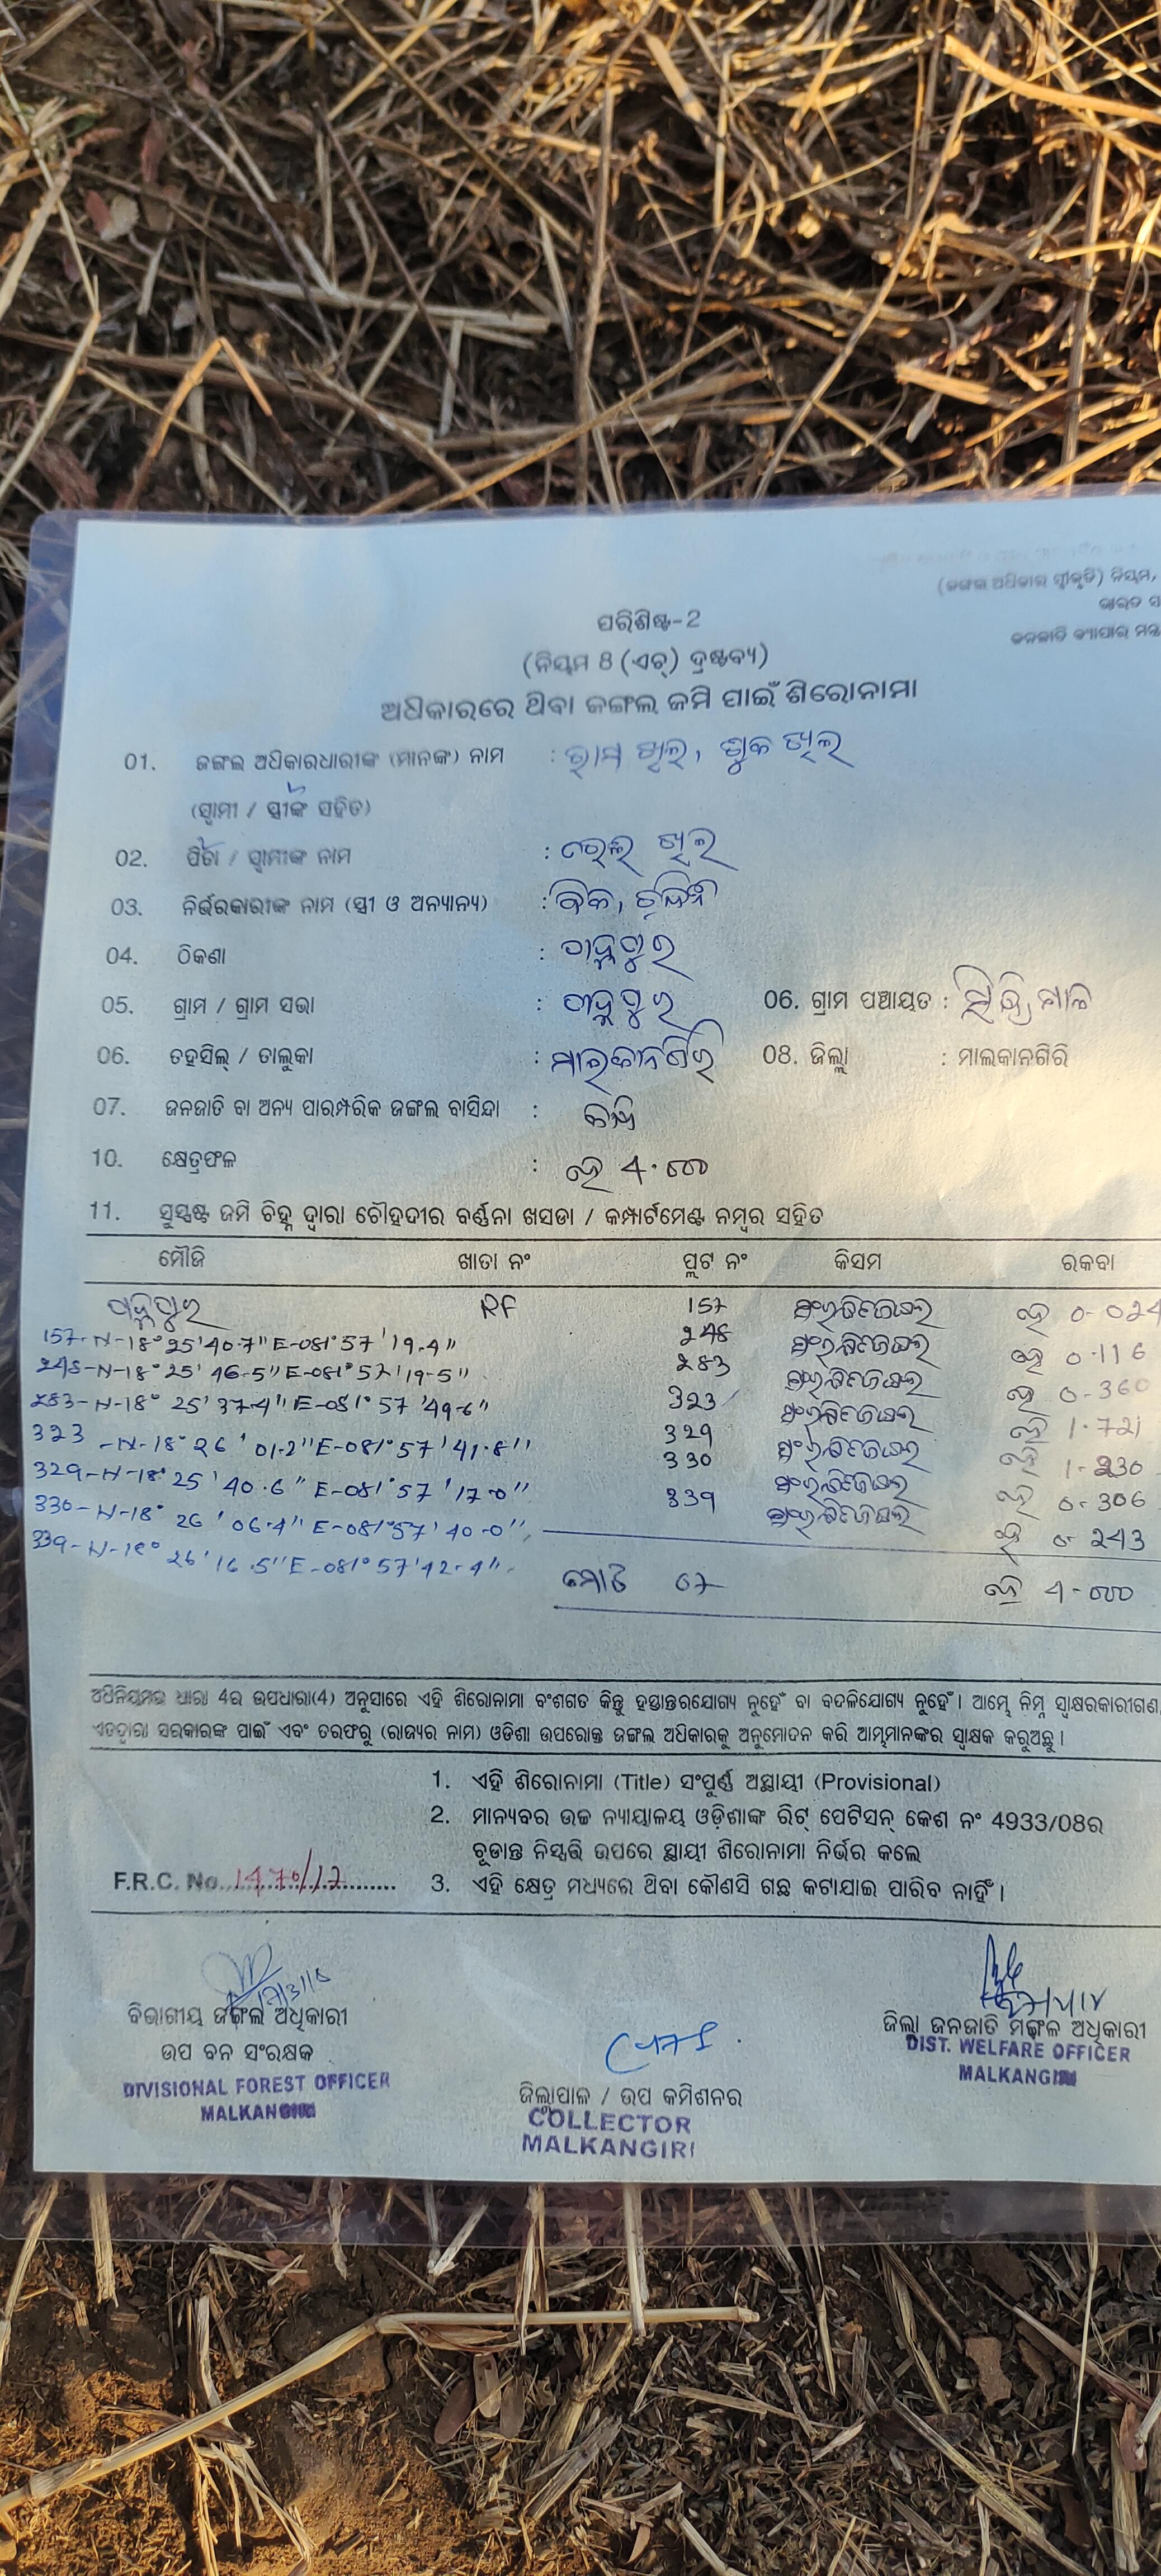 (ଜଙ୍ଗଲ ଅଧିକାର ସ୍ୱୀକୃତି) ନିୟମ,
ଭାରତ ସ
ଜନଜାତି ବ୍ୟାପାର ମନ୍ତ
ପରିଶିଷ୍ଟ-2
(ନିୟମ 8 (ଏଚ୍) ଦ୍ରଷ୍ଟବ୍ୟ)
ଅଧିକାରରେ ଥିବା ଜଙ୍ଗଲ ଜମି ପାଇଁ ଶିରୋନାମା
01. ଜଙ୍ଗଲ ଅଧିକାରଧାରୀଙ୍କ (ମାନଙ୍କ) ନାମ : ରାମ ଖିଲ, ଶୁକ ଖିଲ
(ସ୍ୱାମୀ / ସ୍ତ୍ରୀଙ୍କ ସହିତ)
02. ପିତା / ସ୍ୱାମୀଙ୍କ ନାମ : ଖିଲ
03. ନିର୍ଭରକାରୀଙ୍କ ନାମ (ସ୍ତ୍ରୀ ଓ ଅନ୍ୟାନ୍ୟ) :
04. ଠିକଣା :
05. ଗ୍ରାମ / ଗ୍ରାମ ସଭା : 06. ଗ୍ରାମ ପଞ୍ଚାୟତ :
06. ତହସିଲ୍ / ତାଲୁକା : ମାଲକାନଗିରି 08. ଜିଲ୍ଲା : ମାଲକାନଗିରି
07. ଜନଜାତି ବା ଅନ୍ୟ ପାରମ୍ପରିକ ଜଙ୍ଗଲ ବାସିନ୍ଦା :
10. କ୍ଷେତ୍ରଫଳ : ହେ 4.000
11. ସୁସ୍ପଷ୍ଟ ଜମି ଚିହ୍ନ ଦ୍ୱାରା ଚୌହଦୀର ବର୍ଣ୍ଣନା ଖସଡା / କମ୍ପାର୍ଟମେଣ୍ଟ ନମ୍ବର ସହିତ
ମୌଜି ଖାତା ନଂ ପ୍ଲଟ ନଂ କିସମ ରକବା
RF 157 ହେ 0-024
157-N-18°25'40.7"E-081°57'19.4" 248 ହେ 0.116
248-N-18°25'46.5"E-081°57'19.5" 283 ହେ 0-360
283-N-18°25'37.4"E-081°57'49.6" 323 ହେ 1.721
323-N-18°26'01.2"E-081°57'41.8" 329 ହେ 1-230
329-N-18°25'40.6"E-081°57'17.0" 330 ହେ 0.306
330-N-18°26'06.4"E-081°57'40.0" 339 ହେ 0-243
339-N-18°26'16.5"E-081°57'42.4"
ମୋଟ 07 ହେ 4-000
ଅଧିନିୟମର ଧାରା 4ର ଉପଧାରା(4) ଅନୁସାରେ ଏହି ଶିରୋନାମା ବଂଶଗତ କିନ୍ତୁ ହସ୍ତାନ୍ତରଯୋଗ୍ୟ ନୁହେଁ ବା ବଦଳିଯୋଗ୍ୟ ନୁହେଁ । ଆମ୍ଭେ ନିମ୍ନ ସ୍ୱାକ୍ଷରକାରୀଗଣ,
ଏତଦ୍ୱାରା ସରକାରଙ୍କ ପାଇଁ ଏବଂ ତରଫରୁ (ରାଜ୍ୟର ନାମ) ଓଡିଶା ଉପରୋକ୍ତ ଜଙ୍ଗଲ ଅଧିକାରକୁ ଅନୁମୋଦନ କରି ଆମ୍ଭମାନଙ୍କର ସ୍ୱାକ୍ଷକ କରୁଅଛୁ ।
1. ଏହି ଶିରୋନାମା (Title) ସଂପୂର୍ଣ୍ଣ ଅସ୍ଥାୟୀ (Provisional)
2. ମାନ୍ୟବର ଉଚ୍ଚ ନ୍ୟାୟାଳୟ ଓଡ଼ିଶାଙ୍କ ରିଟ୍ ପେଟିସନ୍ କେଶ ନଂ 4933/08ର
ଚୂଡାନ୍ତ ନିସ୍ପତ୍ତି ଉପରେ ସ୍ଥାୟୀ ଶିରୋନାମା ନିର୍ଭର କଲେ
F.R.C. No. 1470/17 3. ଏହି କ୍ଷେତ୍ର ମଧ୍ୟରେ ଥିବା କୌଣସି ଗଛ କଟାଯାଇ ପାରିବ ନାହିଁ ।
ବିଭାଗୀୟ ଜଙ୍ଗଲ ଅଧିକାରୀ
ଉପ ବନ ସଂରକ୍ଷକ
DIVISIONAL FOREST OFFICER
MALKANGIRI
ଜିଲ୍ଲାପାଳ / ଉପ କମିଶନର
COLLECTOR
MALKANGIRI
ଜିଲ୍ଲା ଜନଜାତି ମଙ୍ଗଳ ଅଧିକାରୀ
DIST. WELFARE OFFICER
MALKANGIRI